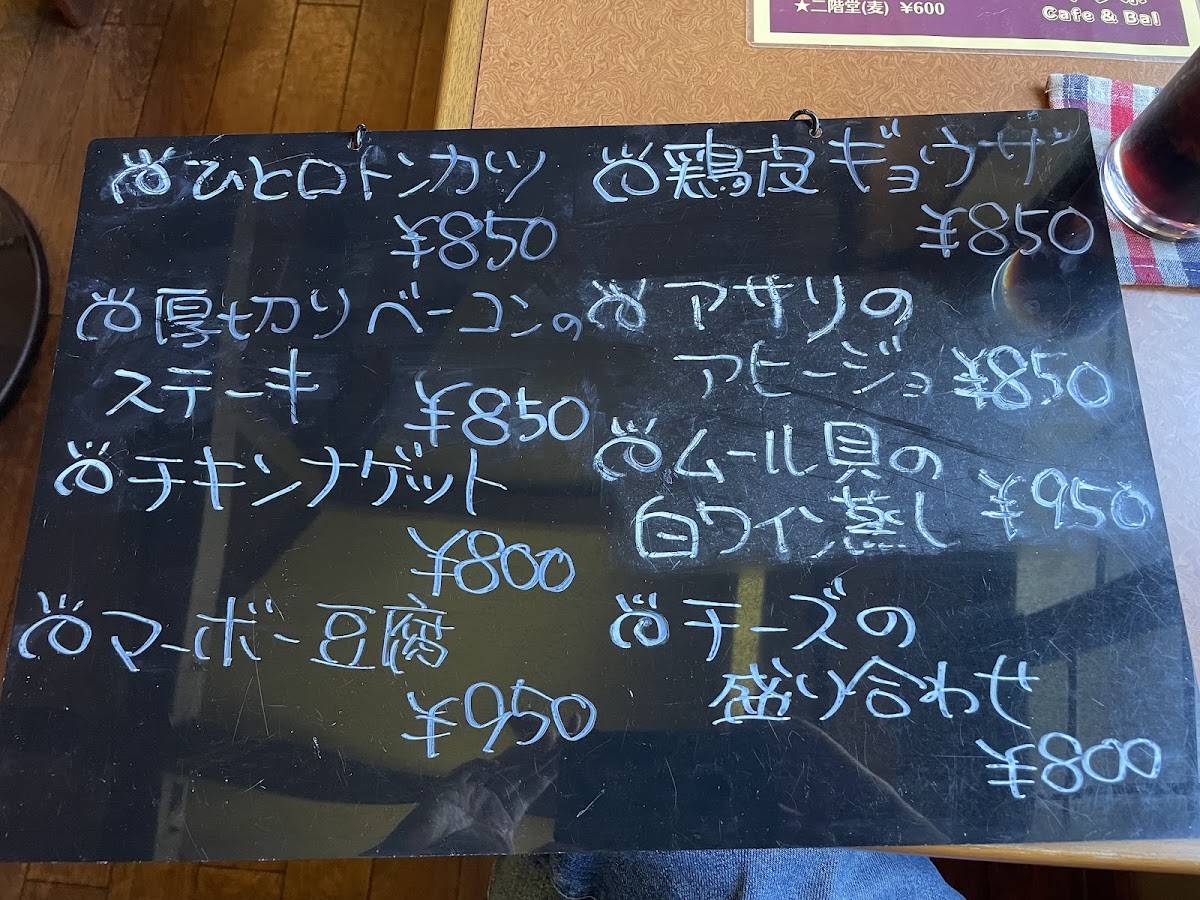 ★二階堂(麦) ¥600
Cafe & Bal
ひと口トンカツ
¥850
厚切りベーコンの
ステーキ ¥850
チキンナゲット
¥800
マーボー豆腐
¥950
鶏皮ギョウザ
¥850
アサリの
アヒージョ ¥850
ムール貝の
白ワイン蒸し ¥950
チーズの
盛り合わせ
¥800